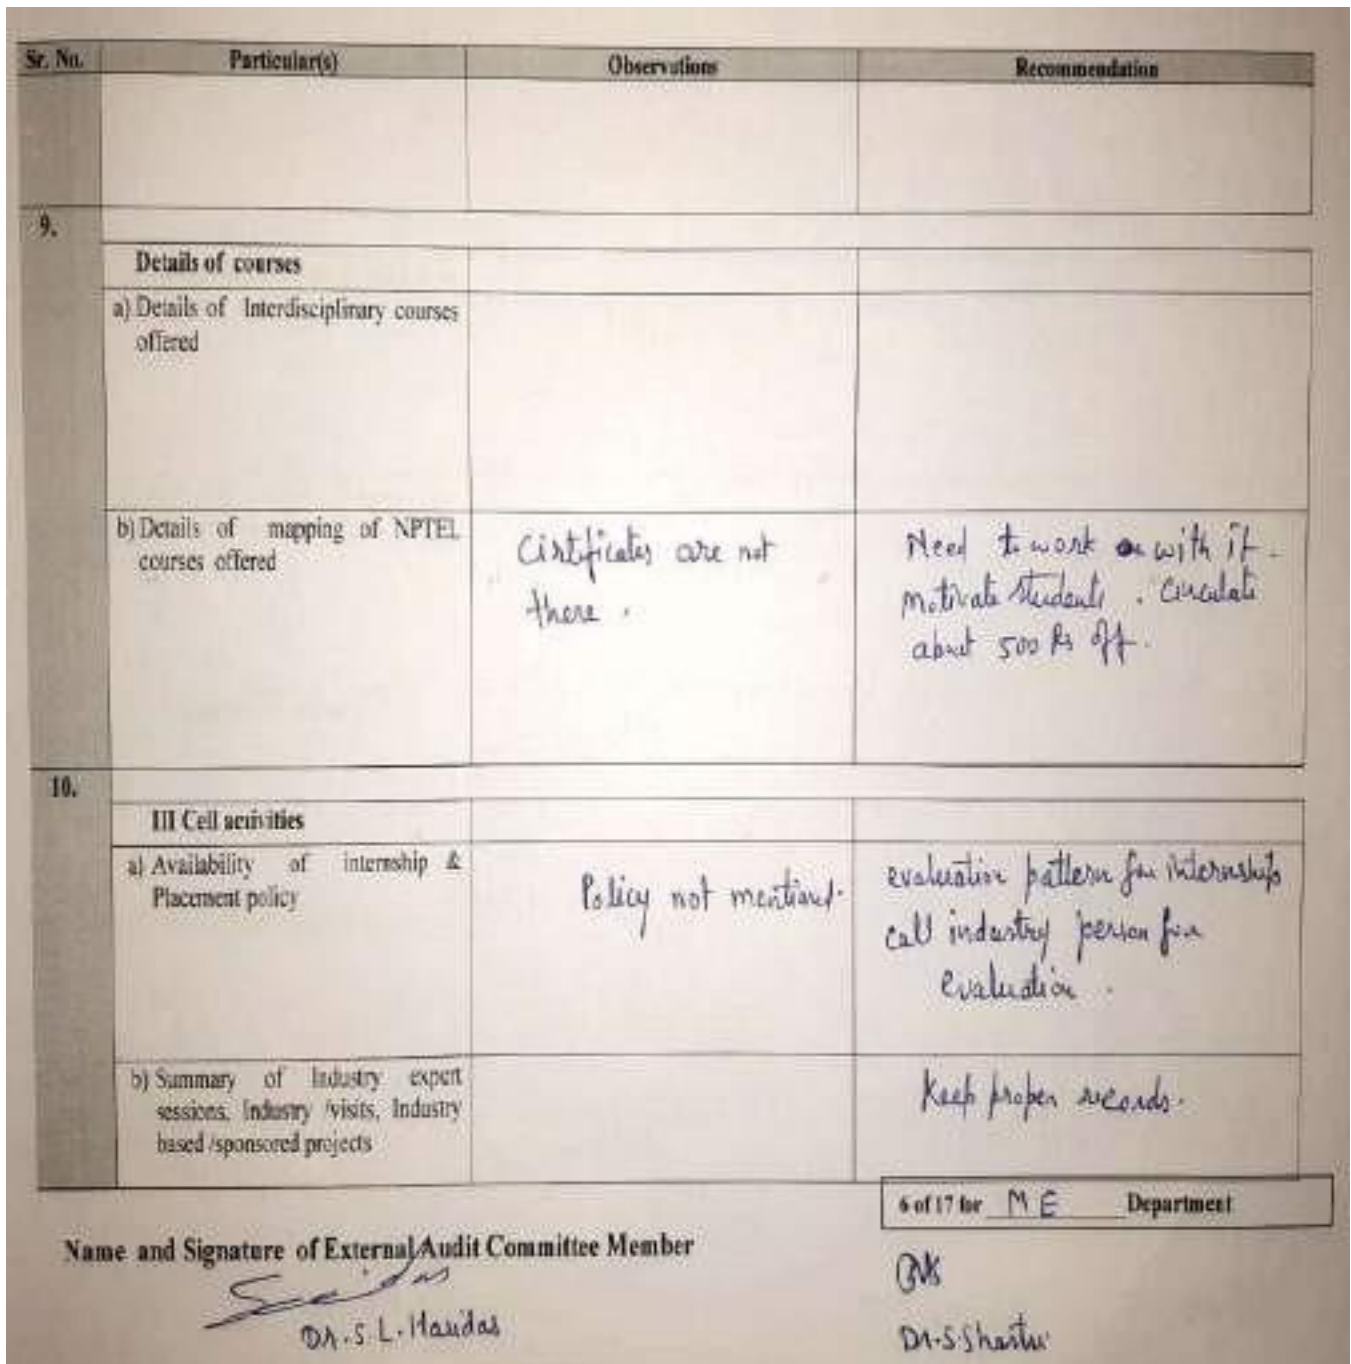 Sr. No. Particular(s) Observations Recommendation
9.
Details of courses
a) Details of Interdisciplinary courses
offered
b) Details of mapping of NPTEL
courses offered
Cirtificates are not
there.
Need to work on with it -
motivate students. Circulate
about 500 Rs off.
10.
III Cell activities
a) Availability of internship &
Placement policy
Policy not mentioned.
evaluation pattern for internships
call industry person for
evaluation.
b) Summary of Industry expert
sessions, Industry /visits, Industry
based /sponsored projects
Keep proper records.
6 of 17 for ME Department
Name and Signature of External Audit Committee Member
Dr. S. L. Haridas
Dr. S Shastri